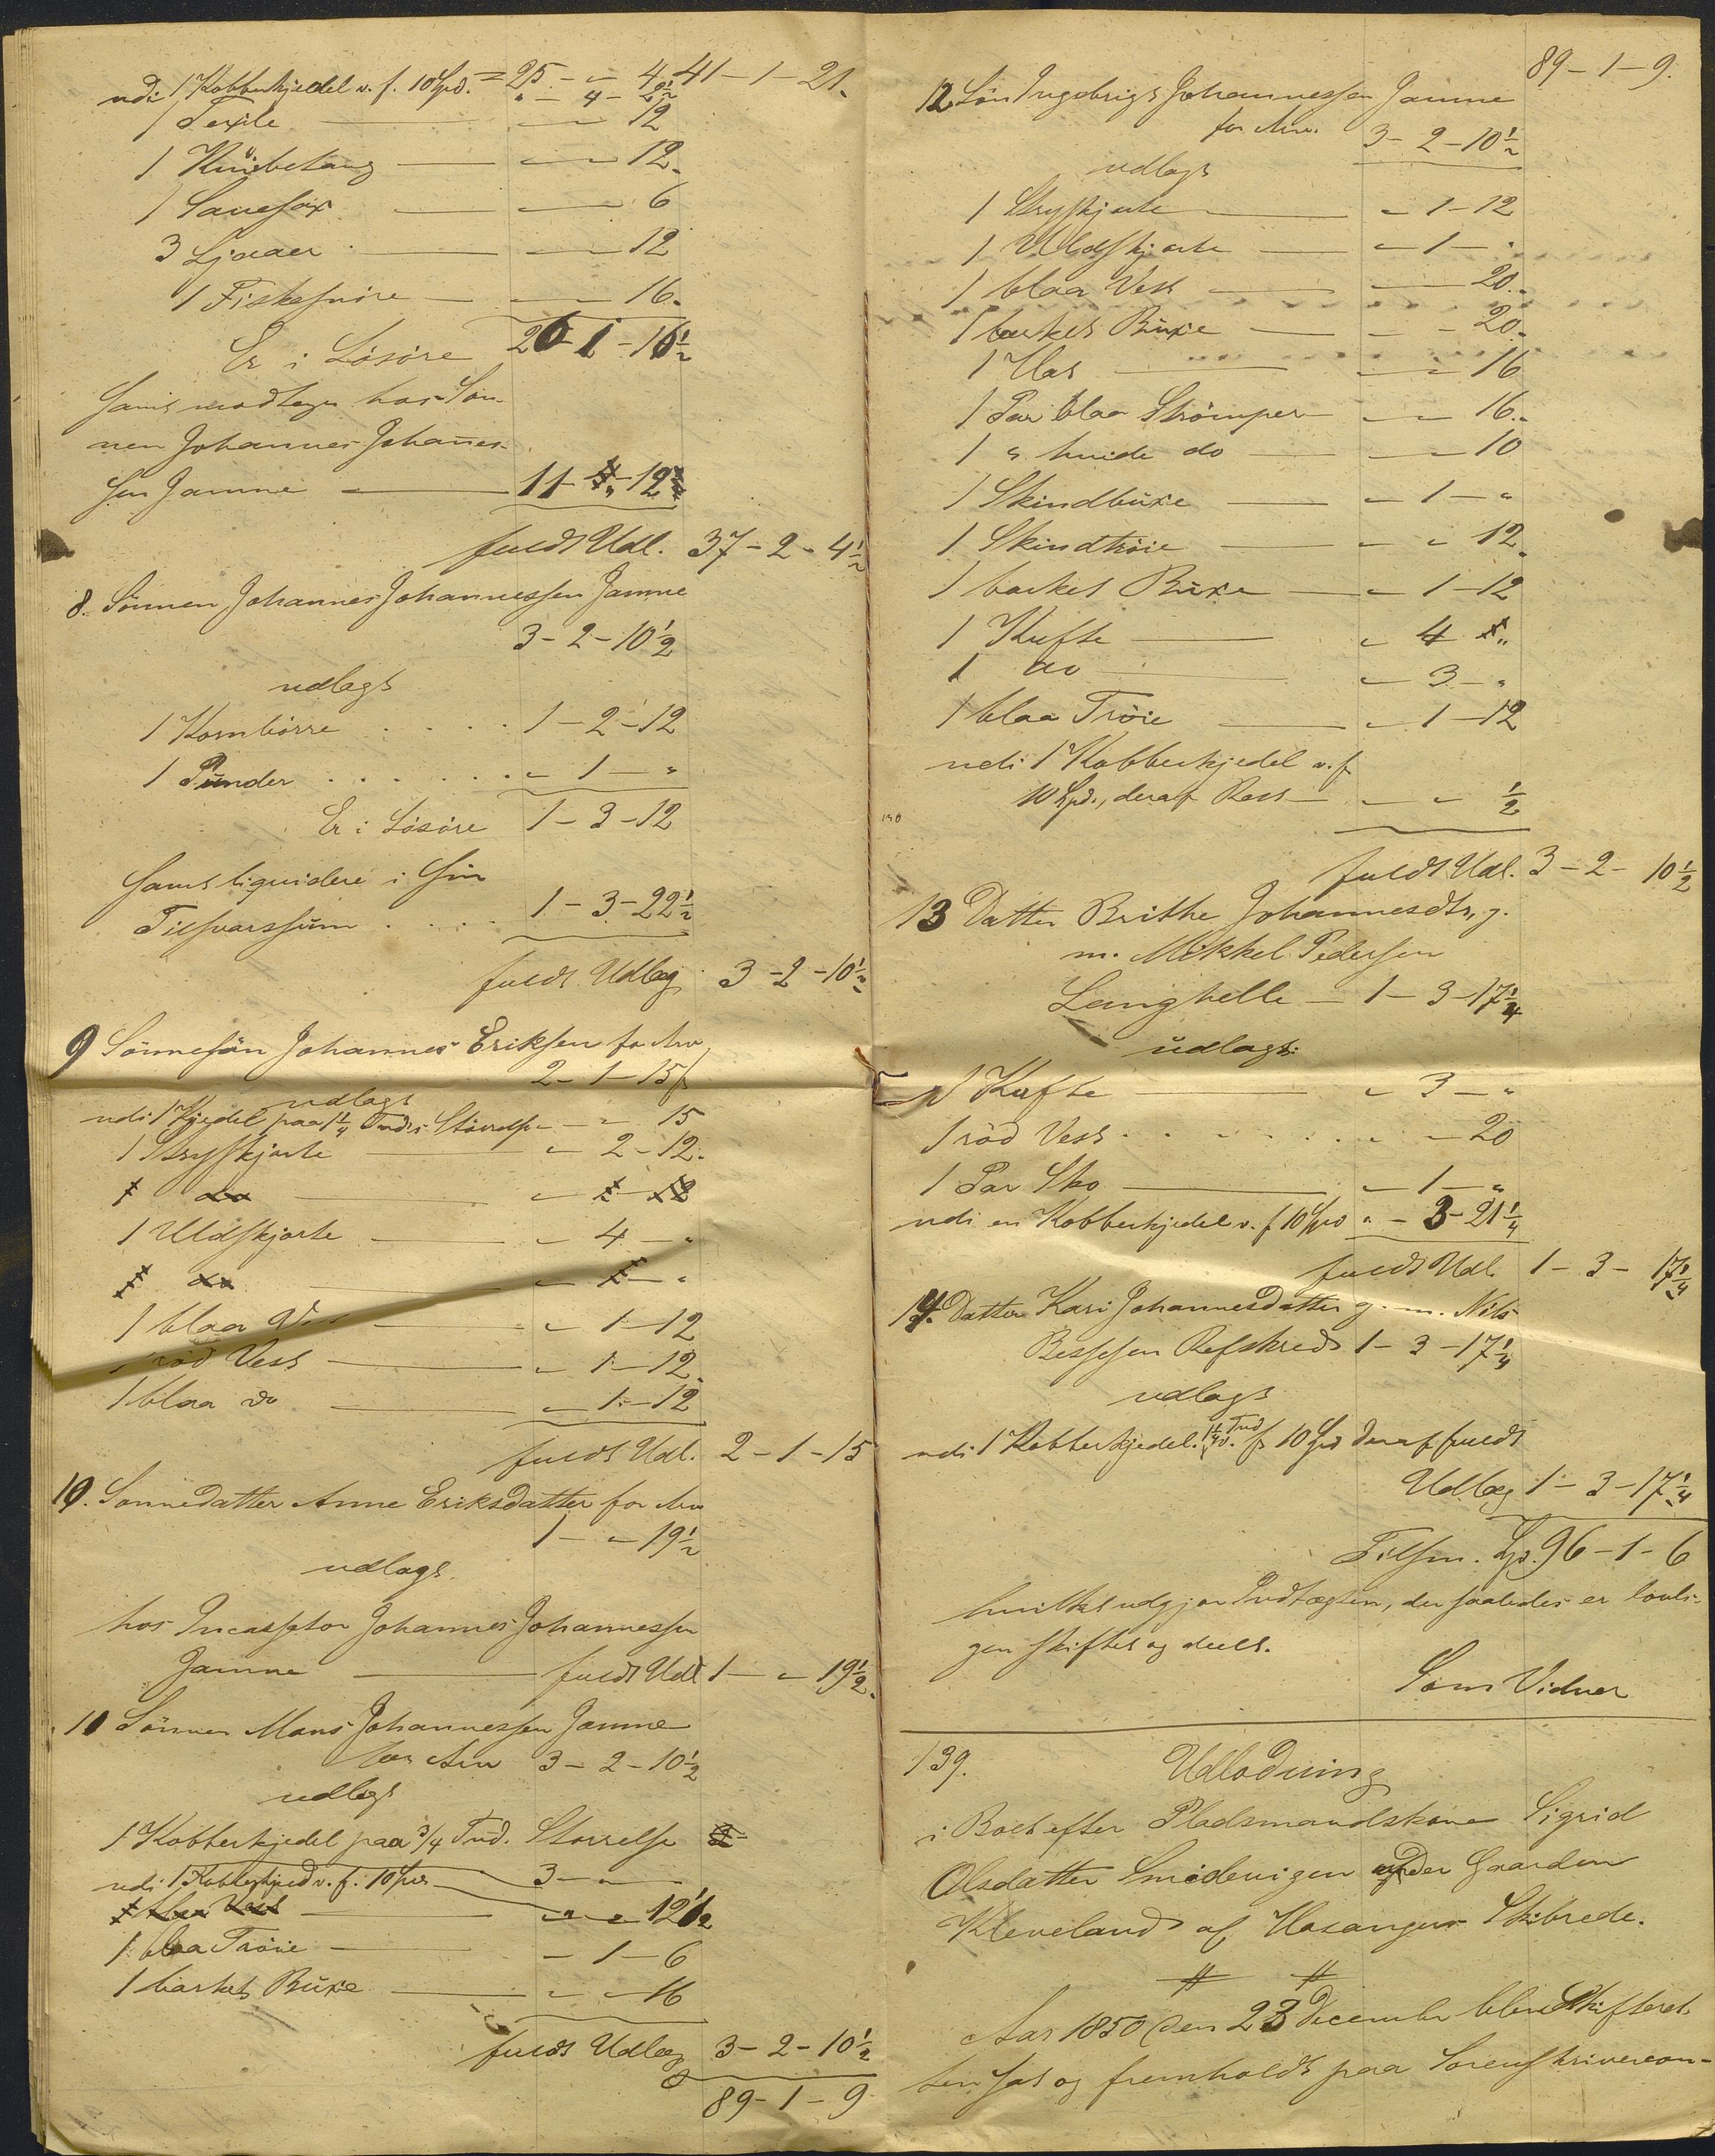 udi 1 Kobberkjedel v. f. 10 Spd. = 25 - " - 4 41 - 1 - 21.
" - 4 - 2½
1 Texle — " 12
1 Knibetang — " 12.
1 Sauesax — " 6
3 Ljaaer — " 12
1 Fiskesnöre — " 16.
Er i Lösöre 26 - 1 - 16½
samt modtager hos Søn-
nen Johannes Johannes-
sen Jamne — 11 - " - 12
fuldt Udl. 37 - 2 - 4½
8. Sönnen Johannes Johannessen Jamne
3 - 2 - 10½
udlagt
1 Kornbörre . . . . 1 - 2 - 12
1 Punder . . . . . " 1 - "
Er i Lösöre 1 - 3 - 12
samt liquidere i sin
Tilsvarssum . . . . 1 - 3 - 22½
fuldt Udlæg 3 - 2 - 10½
9 Sönnesön Johannes Eriksen for Arv
2 - 1 - 15 ß
udlagt
udi 1 Kjedel paa 1¼ Tnds Størrelse - " 15
1 Stryskjorte — " 2 - 12.
1 do — "
1 Uldskjorte — " 4 - "
1 do — "
1 blaa Vest — " 1 - 12
1 röd Vest — " 1 - 12.
1 blaa do — " 1 - 12
fuldt Udl. 2 - 1 - 15
10. Sønnedatter Anne Eriksdatter for Arv
1 - " - 19½
udlagt
hos Incassator Johannes Johannessen
Jamne — fuldt Udl 1 - " 19½.
11 Sönnen Mons Johannessen Jamne
for Arv 3 - 2 - 10½
udlagt
1 Kobberkjedel paa ¾ Tnd. Størrelse
3 - "
udi 1 Kobberkjed v. f. 10 Spd
1 blaa Vest — " " 12½
1 blaa Tröie — - 1 - 6
1 barket Büxe — " " 16
fuldt Udlæg 3 - 2 - 10½
89 - 1 - 9
89 - 1 - 9.
12 Sön Ingebrigt Johannessen Jamne
for Arv. 3 - 2 - 10½
udlagt
1 Stryskjorte — " 1 - 12
1 Uldskjorte — " 1 - "
1 blaa Vest — " 20.
1 barket Büxe — " - 20.
1 Hat — " 16
1 Par blaa Strömper — " 16.
1 " hvide do — " 10
1 Skindbüxe — " 1 - "
1 Skindtröie — " " 12.
1 barket Büxe — " 1 - 12
1 Kufte — " 4 "
1 do — " 3 - "
1 blaa Tröie — " 1 - 12
udi 1 Kobberkjedel v. f.
10 Spd., deraf Rest — " " ½
fuldt Udl. 3 - 2 - 10½
13 Datter Brithe Johannesdtr, g.
m. Mikkel Pedersen
Langhelle — 1 - 3 - 17¼
udlagt:
1 Kufte — " 3 - "
1 röd Vest . . . . . . " - 20
1 Par Sko — " 1 - "
udi en Kobberkjedel v. f 10 Spd " - 3 - 21¼
fuldt Udl. 1 - 3 - 17¼
14. Datter Kari Johannesdatter g. m. Nils
Bessesen Refskred 1 - 3 - 17¼
udlagt
udi 1 Kobberkjedel 1¼ Tnd v. f 10 Spd deraf fuldt
Udlæg 1 - 3 - 17¼
Tilsm. Spd. 96 - 1 - 6
hvilket udgjør Indtægten, der saaledes er lovli-
gen skiftet og deelt.
Som Vidner
139. Udlodning
i Boet efter Pladsmandskone Sigrid
Olsdatter Smidevigen under Gaarden
Kleveland af Hosanger Skibrede.
Aar 1850 den 23 December blev Skifteret-
ten sat og fremholdt paa Sorenskrivercon-